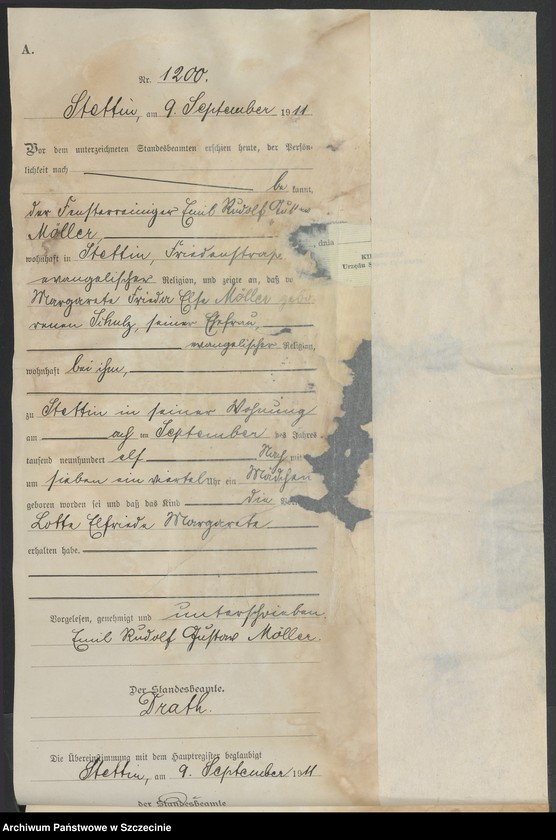 A.
Nr. 1200.
Stettin, am 9. September 1911
Vor dem unterzeichneten Standesbeamten erschien heute, der Persön-
lichkeit nach
be kannt,
der Fensterreiniger Emil Rudolf
Möller,
wohnhaft in Stettin, Friedenstraße
evangelischer Religion, und zeigte an, daß
Margarete Frieda Else Möller gebo-
renen Schulz, seiner Ehefrau,
evangelischer Religion,
wohnhaft bei ihm,
zu Stettin in seiner Wohnung
am acht im September des Jahres
tausend neunhundert elf Nach mit
um sieben ein viertel Uhr ein Mädchen
geboren worden sei und daß das Kind die Vor
Lotte Elfriede Margarete
erhalten habe.
Vorgelesen, genehmigt und unterschrieben.
Emil Rudolf Gustav Möller.
Der Standesbeamte.
Drath.
Die Übereinstimmung mit dem Hauptregister beglaubigt
Stettin, am 9. September 1911
der Standesbeamte
, dnia
Urzędu S
Archiwum Państwowe w Szczecinie